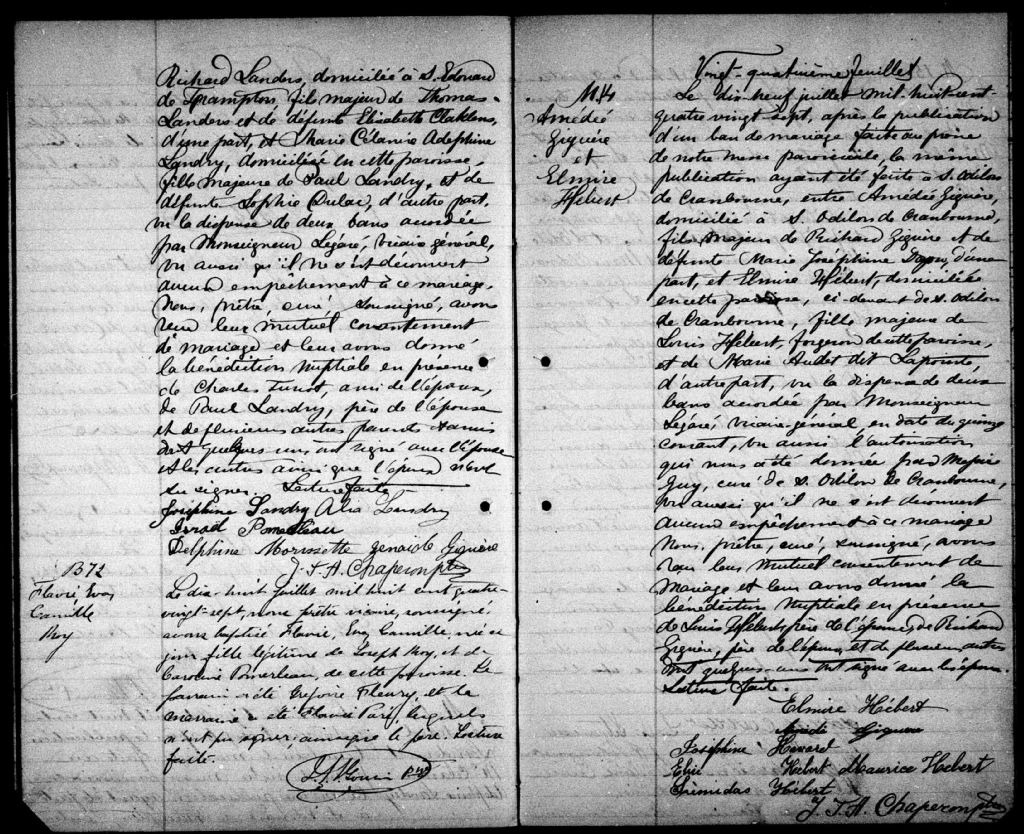 Richard Landers, domicilié à S. Edouard
de Frampton, fils majeur de Thomas
Landers et de défunte Elisabeth
d'une part, et Marie Célanire Adelphine
Landry, domiciliée en cette paroisse,
fille majeure de Paul Landry, et de
défunte Sophie Dulac, d'autre part,
vu la dispense de deux bans accordée
par Monseigneur Légaré, vicaire général,
vu aussi qu'il ne s'est découvert
aucun empêchement à ce mariage,
Nous, prêtre, curé, soussigné, avons
reçu leur mutuel consentement
de mariage et leur avons donné
la bénédiction nuptiale en présence
de Charles ami de l'époux,
de Paul Landry, père de l'épouse
et de plusieurs autres parents et amis
dont quelques uns ont signé avec l'épouse
et les autres ainsi que l'époux n'ont
su signer. Lecture faite.
Joséphine Landry Landry
Pomerleau
Delphine Morissette Zenaide Giguère
J. T. A. Chaperon ptre
B72
Flavie, Eva,
Camille
Roy
Le dix-huit juillet mil huit cent quatre-
vingt-sept, nous prêtre vicaire, soussigné
avons baptisé Flavie, Eva, Camille, née ce
jour fille légitime de Joseph Roy, et de
Caroline Pomerleau, de cette paroisse. Le
parrain a été Grégoire Fleury, et la
marraine a été Flavie Paré, lesquels
n'ont pu signer, ainsi que le père. Lecture
faite.
Ptre
Vingt-quatrième feuillet
M14
Amédée
Giguère
et
Elmire
Hébert
Le dix-neuf juillet mil huit cent-
quatre vingt sept, après la publication
d'un ban de mariage faite au prône
de notre messe paroissiale, la même
publication ayant été faite à S. Odilon
de Cranbourne, entre Amédée Giguère,
domicilié à S. Odilon de Cranbourne,
fils majeur de Richard Giguère et de
défunte Marie Joséphine d'une
part, et Elmire Hébert, domiciliée
en cette paroisse, ci-devant de S. Odilon
de Cranbourne, fille majeure de
Louis Hébert, forgeron de cette paroisse,
et de Marie Audet dit Lapointe,
d'autre part, vu la dispense de deux
bans accordée par Monseigneur
Légaré, vicaire général, en date du quinze
courant, vu aussi l'autorisation
qui nous a été donnée par Messire
Guy, curé de S. Odilon de Cranbourne,
vu aussi qu'il ne s'est découvert
aucun empêchement à ce mariage
Nous, prêtre, curé, soussigné, avons
reçu leur mutuel consentement de
mariage et leur avons donné la
bénédiction nuptiale en présence
de Louis Hébert, père de l'épouse, de Richard
Giguère, père de l'époux, et de plusieurs autres
dont quelques-uns ont signé avec les époux.
Lecture faite.
Elmire Hébert
Amédé Giguère
Joséphine
Hébert Maurice Hébert
Hébert
J. T. A. Chaperon ptre